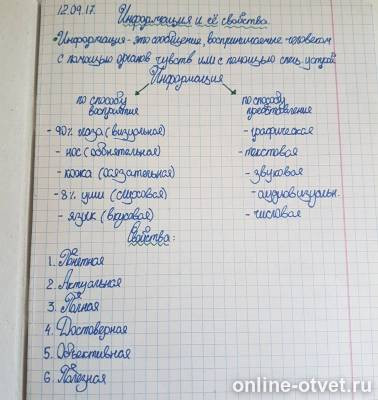 12.09.17. Информация и её свойства.
Информация - это сообщение, воспринимаемые человеком
с помощью органов чувств или с помощью спец. устрой
Информация
по способу восприятия
- 90% глаза (визуальная)
- нос (обонятельная)
- кожа (осязательная)
- 8% уши (слуховая)
- язык (вкусовая)
по способу представления
- графическая
- текстовая
- звуковая
- аудиовизуальн.
- числовая
Свойства:
1. Понятная
2. Актуальная
3. Полная
4. Достоверная
5. Объективная
6. Полезная
online-otvet.ru